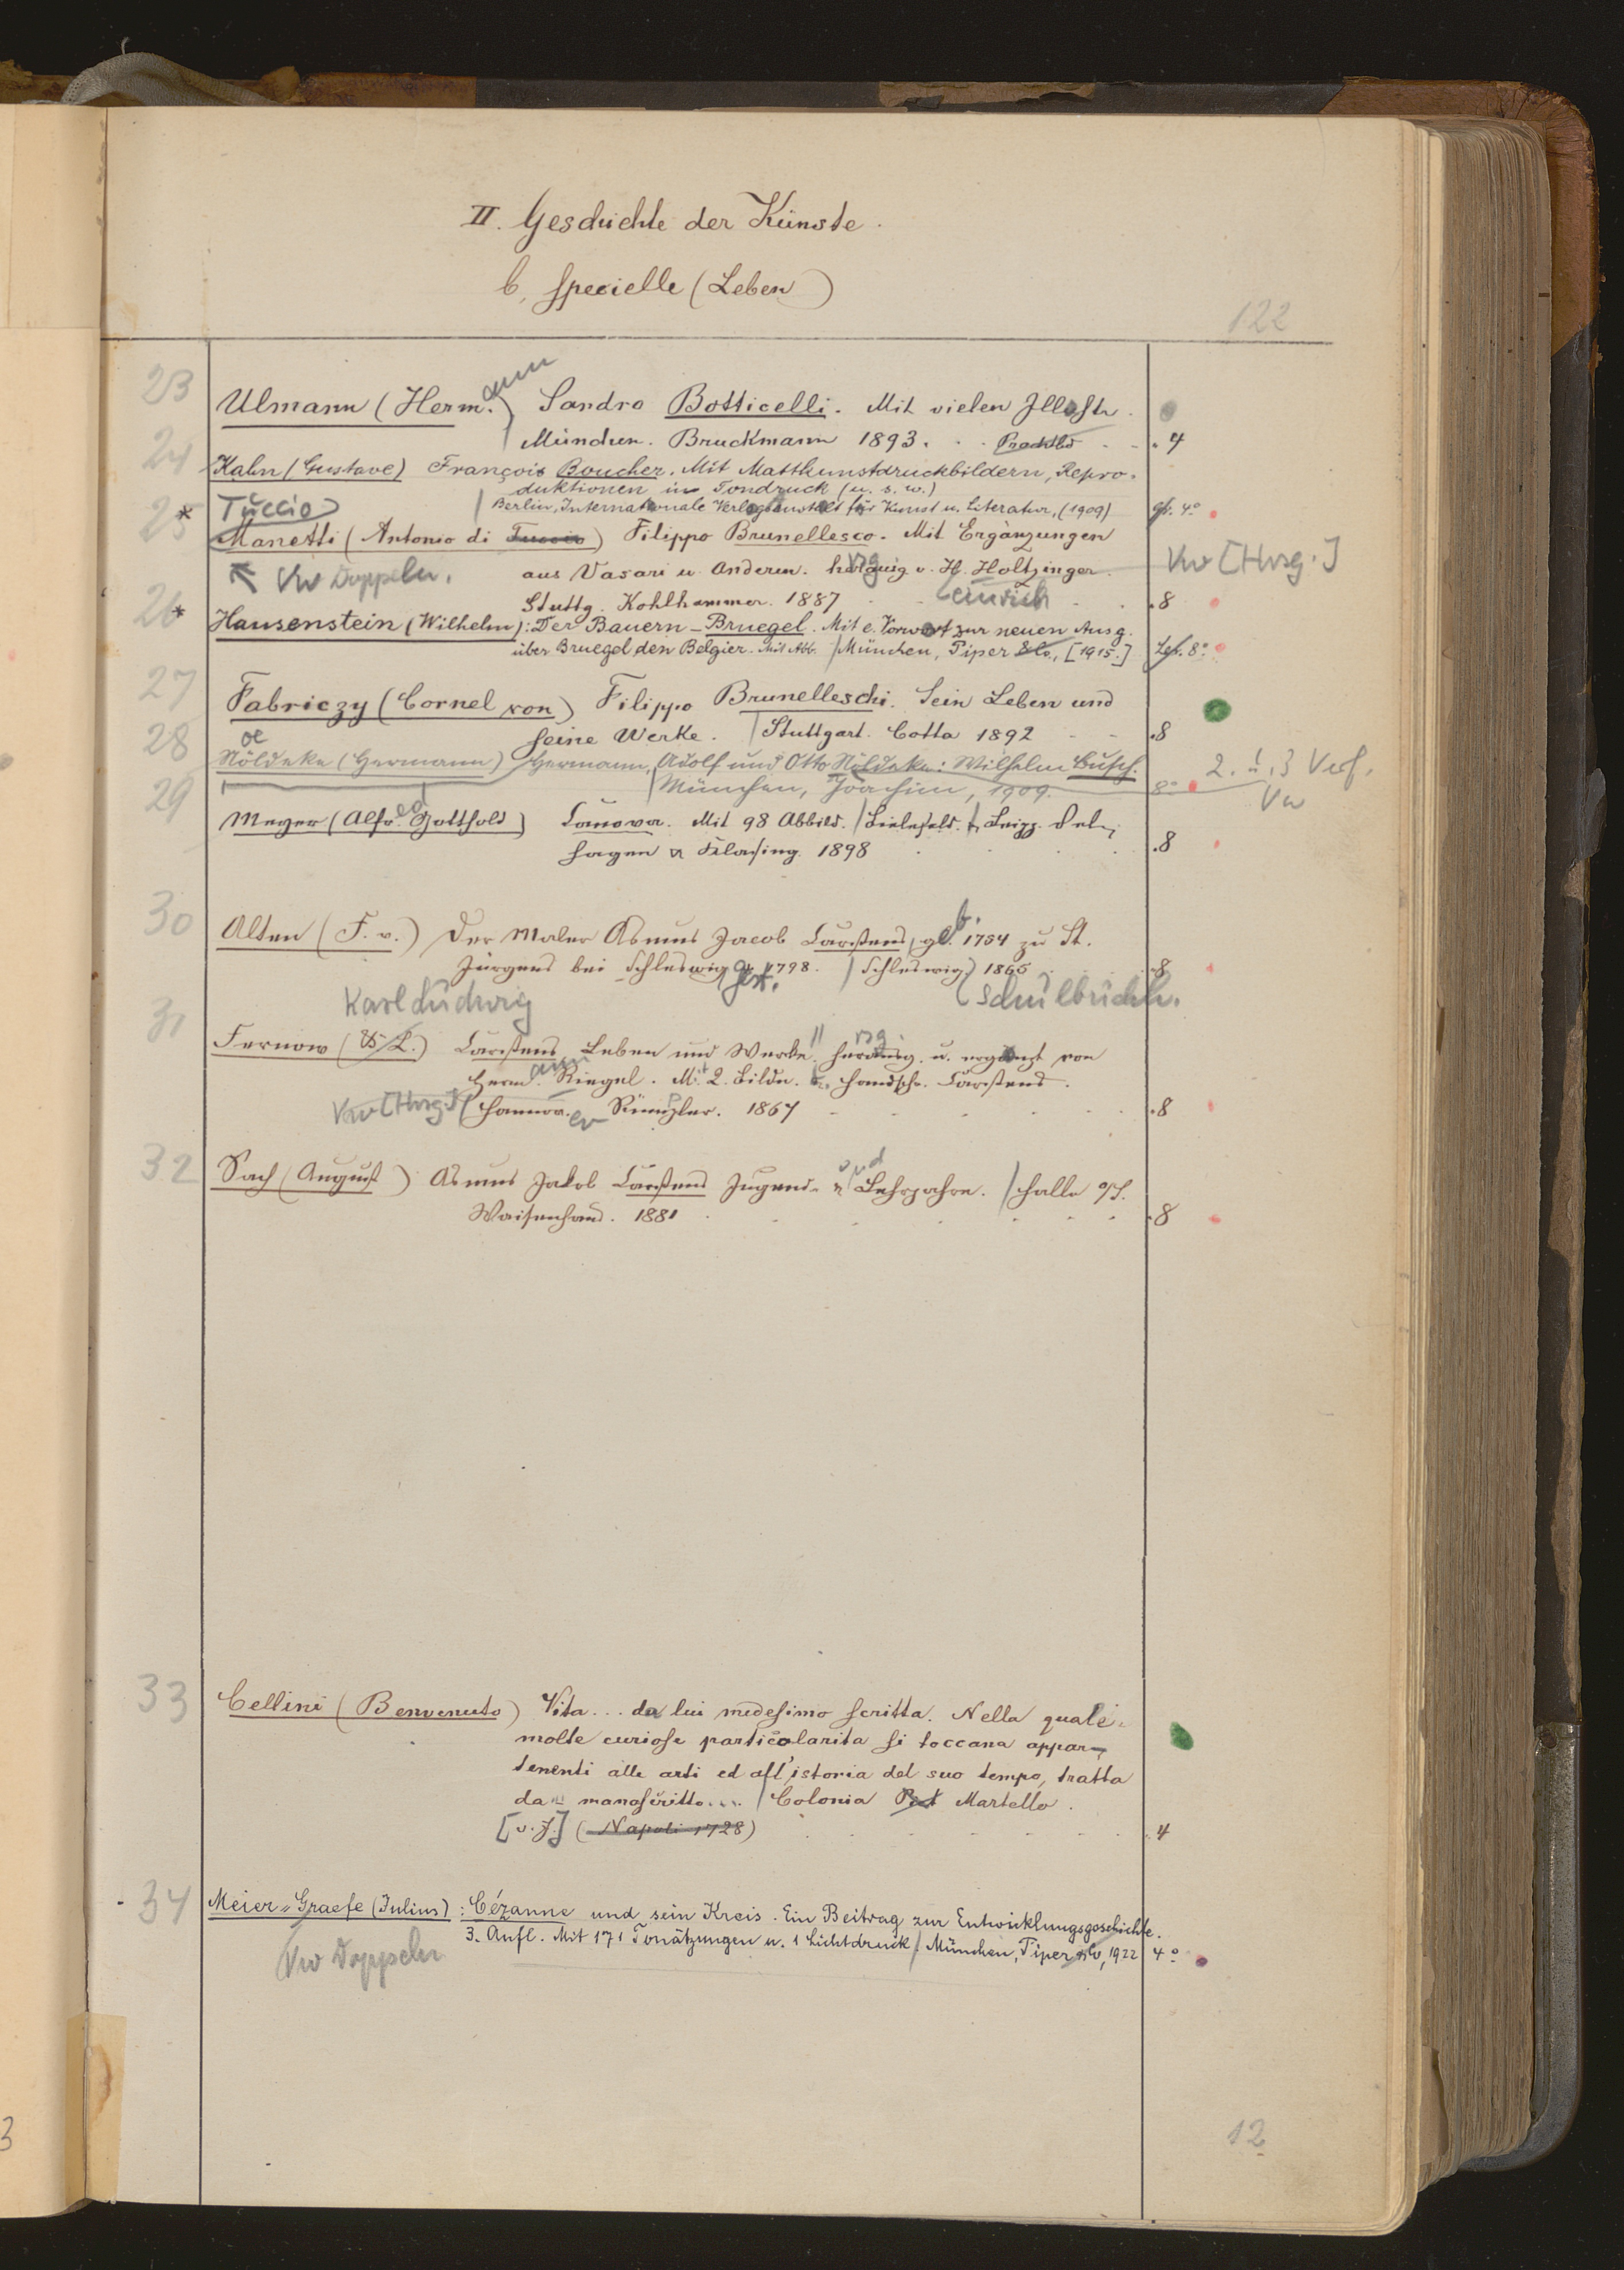 II. Geschichte der Künste.
b, specielle (Leben)
122
23 Ulmann (Herm.ann) Sandro Botticelli. Mit vielen Illustr.
München. Bruckmann 1893. Prachtbd . 4
24 Kahn (Gustave) François Boucher. Mit Mattkunstdruckbildern, Repro-
duktionen in Tondruck (u. s. w.)
Berlin, Internationale Verlagsanstalt für Kunst u. Literatur, (1909) gr. 4°
25* Tuccio
Manetti (Antonio di Tuccio) Filippo Brunellesco. Mit Ergänzungen
Vw Doppeln. aus Vasari u. Anderen. hrsg v. H. Holtzinger. Vw [Hrsg.]
einrich
Stuttg. Kohlhammer. 1887 . 8
26* Hausenstein (Wilhelm): Der Bauern-Bruegel. Mit e. Vorwort zur neuen Ausg.
über Bruegel den Belgier. Mit Abb. / München, Piper & Co., [1915.] Lex. 8°
27 Fabriczy (Cornel von) Filippo Brunelleschi. Sein Leben und
seine Werke. / Stuttgart. Cotta 1892 . 8
28 oe
Nöldeke (Hermann) Hermann, Adolf und Otto Nöldeke: Wilhelm Busch.
München, Joachim, 1909. 8° 2. u. 3 Verf.
Vw
29 Meyer (Alfr.ed Gotthold) Canova. Mit 98 Abbild. / Bielefeld. & Leipz. Vel-
hagen & Klasing. 1898 . 8
30 Alten (F. v.) Der Maler Asmus Jacob Carstens, geb. 1754 zu St.
Jürgens bei Schleswig gest. 1798. / Schleswig 1865 . 8
Schulbuchh.
Karl Ludwig
31 Fernow (K. L.) Carstens Leben und Werke. hrsg. u. ergänzt von
Herm.ann Riegel. Mit 2. Bildn. Handschr. Carstens.
Vw [Hrsg.] Hannover Rümpler. 1867 . 8
32 Sach (August) Asmus Jakob Carstens Jugend- und Lehrjahre. / Halle a/S.
Waisenhaus. 1881 . 8
33 Cellini (Benvenuto) Vita... da lui medesimo scritta. Nella quale
molte curiose particolarita si toccano appar-
tenenti alle arti ed all'istoria del suo tempo, tratta
da manoscritto.... / Colonia Martello.
[o. J.] (Napoli 1728) . 4
34 Meier-Graefe (Julius): Cézanne und sein Kreis. Ein Beitrag zur Entwicklungsgeschichte.
3. Aufl. Mit 171 Tonätzungen u. 1 Lichtdruck / München, Piper & Co, 1922 4°
Vw Doppeln
12